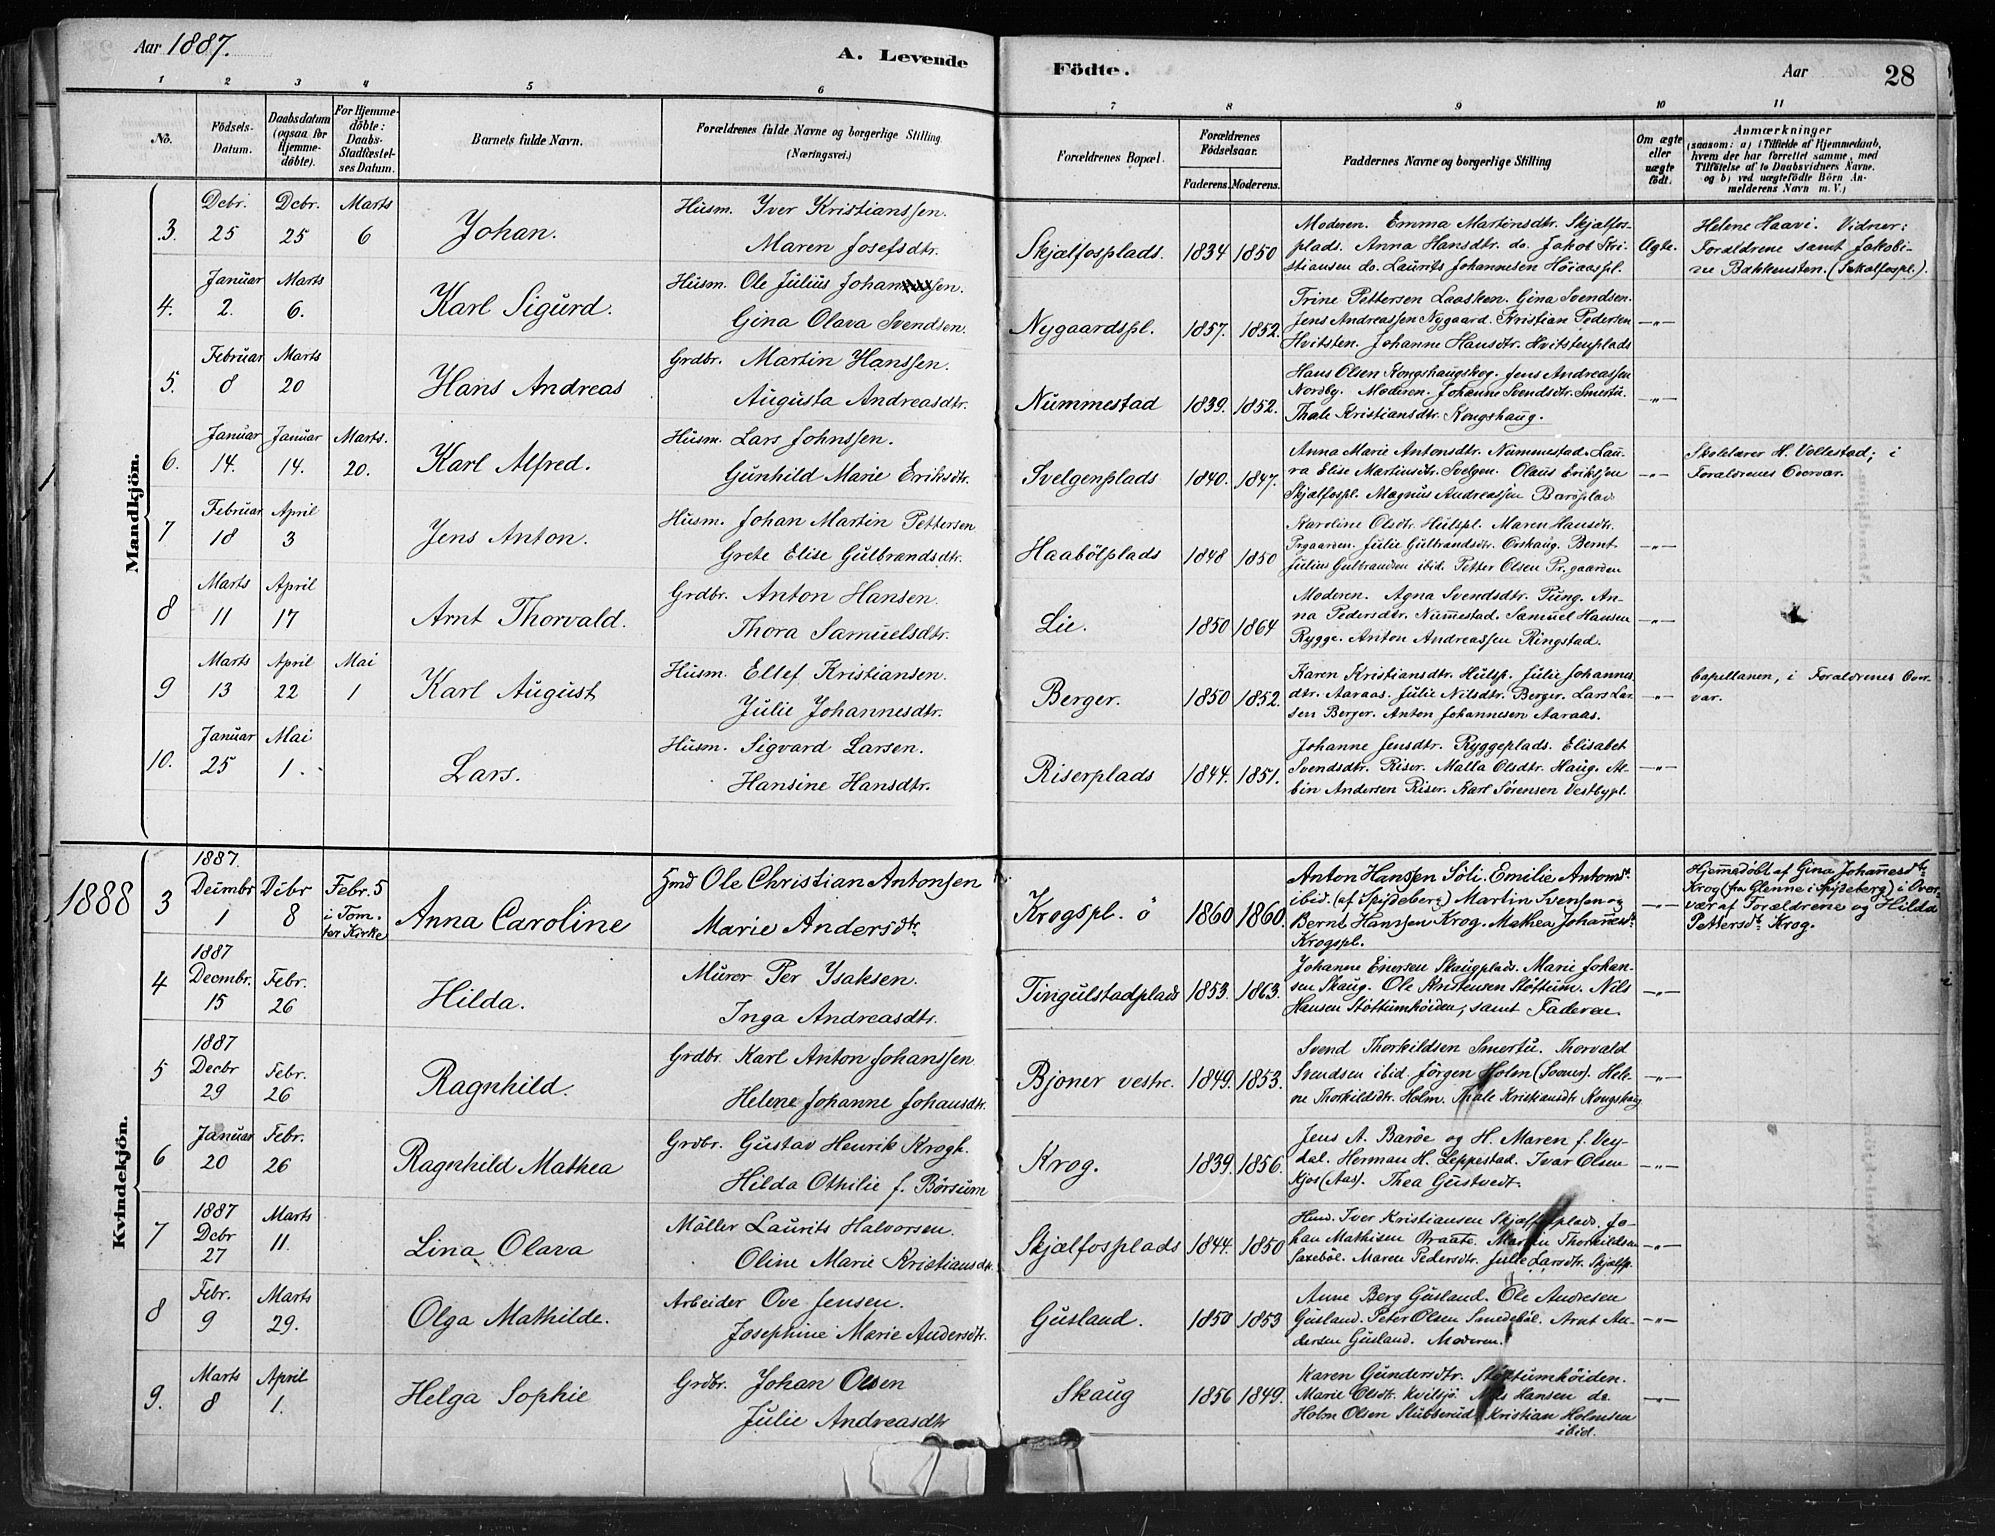 Aar 1887. A. Levende Födte. Aar 28
1 2 3 4 5 6 7 8 9 10 11
No. Födsels-Datum. Daabsdatum (ogsaa for Hjemmedöbte). For Hjemmedöbte: Daabs-Stadfæstelses Datum. Barnets fulde Navn. Forældrenes fulde Navne og borgerlige Stilling (Næringsvei.) Forældrenes Bopæl. Forældrenes Födselsaar. Faderens. Moderens. Faddernes Navne og borgerlige Stilling Om ægte eller uægte födt. Anmærkninger (saasom: a) i Tilfælde af Hjemmedaab, hvem der har forrettet samme, med Tilföielse af to Daabsvidners Navne, og b) ved uægtefödte Börn Anmelderens Navn m. V.)
Mandkjön.
Debr. Debr. Marts
3. 25 25 6 Johan.
Husm. Iver Kristianssen.
Maren Josefsdtr.
Skjælfosplads. 1834 1850
Moderen. Emma Martinsdtr. Skjælfos-
plads. Anna Hansdtr. do. Jakob Kri-
stiansen do. Laurits Johannesen Høiaaspl.
Ægte.
Helene Haavi. Vidner:
Forældrene samt Jakobi-
ne Bakkensten. (Skjælfospl.).
Januar Marts
4. 2. 6. Karl Sigurd.
Husm. Ole Julius Johansen.
Gina Olava Svendsen.
Nygaardspl. 1857. 1852.
Trine Pettersen Laasken. Gina Svendsen.
Jens Andreassen Nygaard. Kristian Pedersen
Hvitsten. Johanne Hansdtr. Hvitstenplads
—"—
Februar Marts
5. 8 20 Hans Andreas
Grdbr. Martin Hanssen.
Augusta Andreasdtr.
Nummestad 1839. 1852.
Hans Olsen Kongshaugskog. Jens Andreassen
Nordby. Moderen. Johanne Svendsdtr. Smestu.
Thale Kristiansdtr. Kongshaug.
—"—
Januar Januar Marts.
6. 14. 14. 20. Karl Alfred.
Husm. Lars Johnssen.
Gunhild Marie Eriksdtr.
Svelgenplads 1840. 1847.
Anna Marie Antonsdtr. Nummestad. Lau-
ra Elise Martinsdtr. Svelgen. Olaus Eriksen
Skjælfospl. Magnus Andreassen Baröplads
—"—
Skolelærer H. Vollestad; i
Forældrenes Overvær.
Februar April
7 18 3 Jens Anton.
Husm. Johan Martin Pettersen
Grete Elise Gulbrandsdtr.
Haabölplads 1848 1850
Karoline Olsdtr. Hulspl. Maren Hansdtr.
Prgaarden. Julie Gulbrandsdtr. Orskaug. Bernt
Julius Gulbrandsen ibid. Petter Olsen Pr.gaarden
—"—
Marts April
8 11 17 Arnt Thorvald.
Grdbr. Anton Hansen.
Thora Samuelsdtr.
Lie. 1850 1864
Moderen. Agna Svendsdtr. Tung. An-
na Pedersdtr. Nummestad. Samuel Hansen
Rygge. Anton Andreassen Ringstad.
—"—
Marts April Mai
9 13 22 1 Karl August
Husm. Ellef Kristiansen.
Julie Johannesdtr.
Berger. 1850 1852.
Karen Kristiansdtr. Hulsp. Julie Johannes
dtr. Aaraas. Julie Nilsdtr. Berger. Lars Lar-
sen Berger. Anton Johannesen Aaraas.
—"—
Capellanen, i Forældrenes Over-
vær.
Januar Mai
10. 25 1. Lars.
Husm. Sigvard Larsen.
Hansine Hansdtr.
Riserplads 1844. 1851.
Johanne Jensdtr. Ryggeplads. Elisabet
Svendsdtr. Riser. Malla Olsdtr. Haug. Al-
bin Andersen Riser. Karl Sørensen Vestbypl.
—"—
Kvindekjön.
1888
1887.
Decembr Debr Febr. 5
3 1 8 i Tom-
ter Kirke
Anna Caroline
Hmd Ole Christian Antonsen
Marie Andersdtr.
Krogspl. ö 1860 1860.
Anton Hanssen Söli. Emilie Antonsdtr.
ibid. (af Spydeberg) Martin Svensen og
Bernt Hanssen Krog. Mathea Johannesdtr.
Krogspl.
—"—
Hjemmedöbt af Gina Johannesdtr.
Krog (fra Glenne i Spydeberg) i Over-
vær af Forældrene og Hilda
Pettersdtr. Krog.
1887
Decmbr. Febr.
4 15 26 Hilda.
Murer Per Isaksen.
Inga Andreasdtr.
Tingulstadplads 1853. 1863.
Johanne Enersen Skaugplads. Marie Johan-
sen Skaug. Ole Anstensen Støttum. Nils
Hansen Støttumhöiden, samt Faderen.
—"—
1887
Decbr Febr.
5 29 26 Ragnhild.
Grdbr. Karl Anton Johanssen
Helene Johanne Johansdtr.
Bjoner vestre. 1849. 1853.
Svend Thorkildsen Smertu. Thorvald
Svendsen ibid Jörgen Holm (Svaner). Hele-
ne Thorkildsdtr. Holm. Thale Kristiansdtr Kongshaug
—"—
Januar Febr.
6 20 26 Ragnhild Mathea
Grdbr. Gustav Henrik Krogh.
Hilda Othilie f. Börsum
Krog. 1839. 1856.
Jens A. Baröe og H. Maren f. Vey-
dal. Herman H. Leppestad. Ivar Olsen
Kjos (Aas). Thea Gustvedt.
—"—
1887
Debr Marts
7 27 11. Lina Olava
Möller Laurits Halvorsen.
Oline Marie Kristiansdtr.
Skjælfosplads 1844. 1850
Husm. Iver Kristiansen Skjælfosplads. Jo-
han Mathisen Braate. Martin Thorkildsen
Saxeböl. Maren Pedersdtr. Julie Larsdtr. Skjælfp.
—"—
Febr. Marts
8 9 29. Olga Mathilde.
Arbeider Ove Jensen.
Josephine Marie Andersdtr.
Gusland. 1850 1853
Anne Berg Gusland. Ole Andresen
Gusland. Peter Olsen Smedeböl. Arnt An-
dersen Gusland. Moderen.
—"—
Marts April
9. 8 1. Helga Sophie
Grdbr. Johan Olsen
Julie Andreasdtr
Skaug 1856 1849.
Karen Gundersdtr. Støttumhöiden.
Marie Olsdtr. Kvilsjö. Nils Hansen do.
Holm Olsen Stubberud. Kristian Holmsen
ibid.
—"—